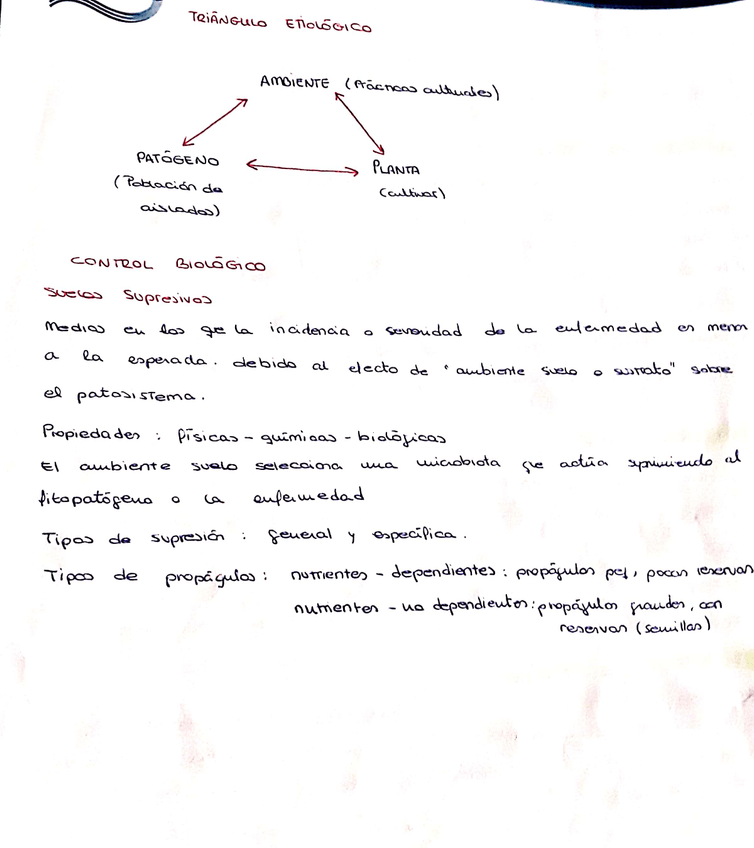 TRIÁNGULO ETIOLÓGICO
AMBIENTE (Prácticas culturales)
PATÓGENO
PLANTA
(Población de
(cultivar)
aislados)
CONTROL BIOLÓGICO
Suelos Supresivos
Medios en los que la incidencia o severidad de la enfermedad es menor
a la esperada. debido al efecto de "ambiente suelo o sustrato" sobre
el patosistema.
Propiedades : físicas - químicas - biológicas
El ambiente suelo selecciona una microbiota que actúa suprimiendo al
fitopatógeno o la enfermedad
Tipos de supresión : general y específica.
Tipos de propágulos : nutrientes - dependientes : propágulos peq, pocas reservas
nutrientes - no dependientes : propágulos grandes, con
reservas (semillas)